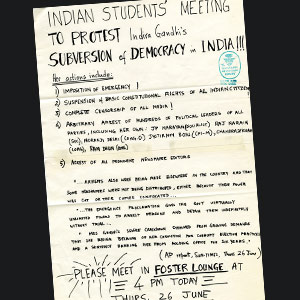 INDIAN STUDENTS' MEETING
TO PROTEST Indira Gandhi's
SUBVERSION of DEMOCRACY in INDIA!!!
Her actions include:
1) IMPOSITION OF EMERGENCY !
2) SUSPENSION OF BASIC CONSTITUTIONAL RIGHTS OF ALL INDIAN CITIZENS
3) COMPLETE CENSORSHIP OF ALL MEDIA !
4) ARBITRARY ARREST OF HUNDREDS OF POLITICAL LEADERS OF ALL
PARTIES, INCLUDING HER OWN : JP NARAYAN RAJ NARAIN
(SOC), MORARJI DESAI (CONG. O) JYOTIRMOY BOSU (CPI-M), CHANDRASEKHAR
(CONG),
5) ARREST OF ALL PROMINENT NEWSPAPER EDITORS
" ... ARRESTS ALSO WERE BEING MADE ELSEWHERE IN THE COUNTRY AND THAT
SOME NEWSPAPERS WERE NOT BEING DISTRIBUTED, EITHER BECAUSE THEIR POWER
WAS CUT OR THEIR COPIES CONFISCATED...
"... THE EMERGENCY PROCLAMATION GIVES THE GOVT VIRTUALLY
UNLIMITED POWERS TO ARREST PERSONS AND DETAIN THEM INDEFINITELY
WITHOUT TRIAL...
" MRS GANDHI'S SEVERE CRACKDOWN FOLLOWED FROM GROWING DEMANDS
THAT SHE RESIGN BECAUSE OF HER CONVICTION FOR CORRUPT ELECTION PRACTICES
AND A SENTENCE BARRING HER FROM HOLDING OFFICE FOR SIX YEARS."
(AP report, SUN-TIMES, June 26 June)
PLEASE MEET IN FOSTER LOUNGE AT
4 PM TODAY
THURS. 26 JUNE